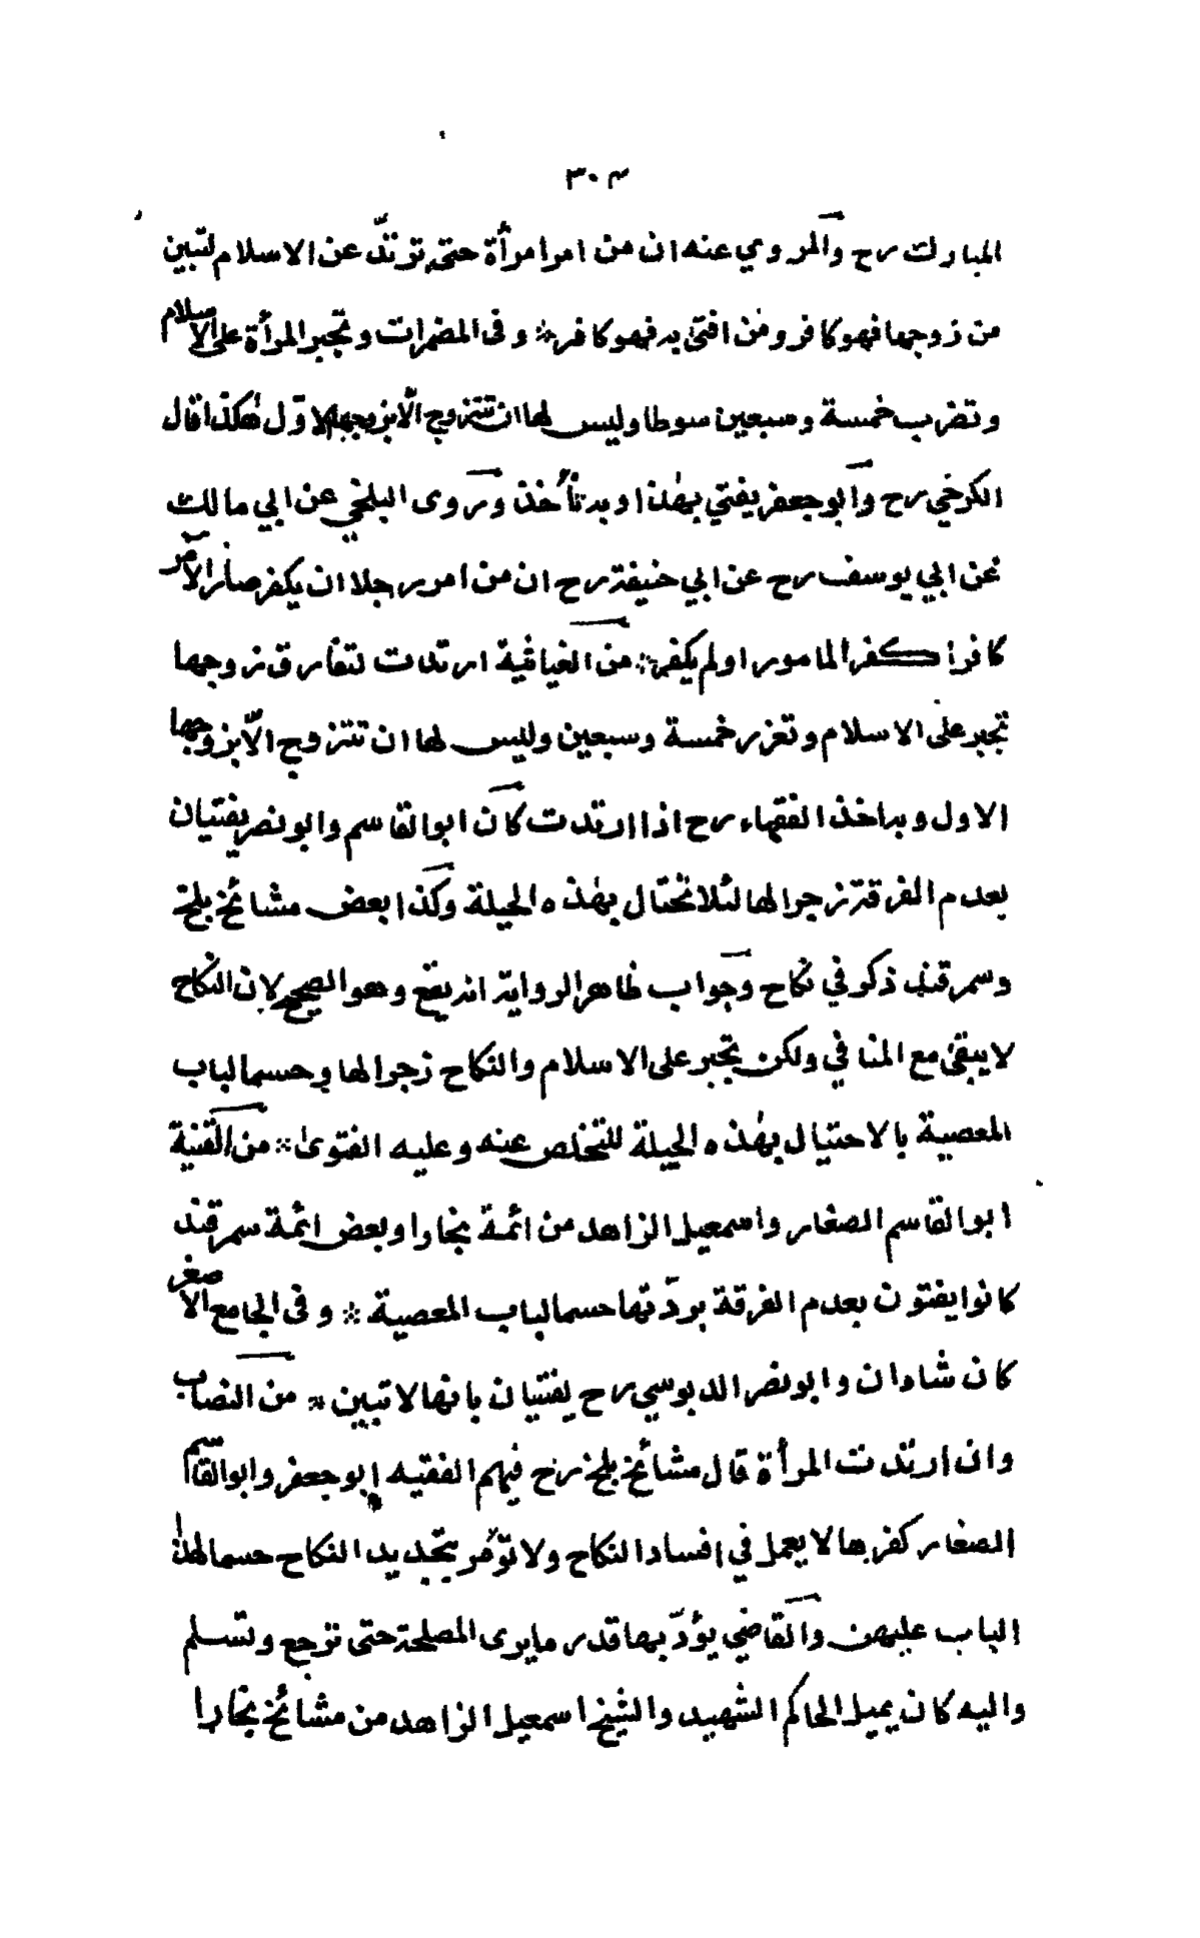 ٣٠٤
المبارك رح والمروي عنه ان من امر امرأة حتى ترتدّ عن الاسلام لتبين
من زوجها فهو كافر ومن افتى به فهو كافر * وفى المضمرات وتجبر المرأة على الاسلام
وتضرب خمسة وسبعين سوطا وليس لها ان تتزوج الّا بزوجها الاوّل هكذا قال
الكرخي رح وابو جعفر يفتي بهذا وبه نأخذ وروى البلخي عن ابي مالك
عن ابي يوسف رح عن ابي حنيفة رح ان من امر رجلا ان يكفر صار الآمر
كافرا كفر المامور او لم يكفر * من الغياثية ارتدت لتفارق زوجها
تجبر على الاسلام وتعزر خمسة وسبعين وليس لها ان تتزوج الّا بزوجها
الاول وبه اخذ الفقهاء رح اذا ارتدت كان ابو القاسم وابو نصر يفتيان
بعدم الفرقة زجرا لها لئلا تحتال بهذه الحيلة وكذا بعض مشائخ بلخ
وسمرقند ذكر في نكاح وجواب ظاهر الرواية انه يقع وهو الصحيح لان النكاح
لا يبقى مع المنافي ولكن تجبر على الاسلام والنكاح زجرا لها وحسما لباب
المعصية بالاحتيال بهذه الحيلة للتخلص عنه وعليه الفتوى * من القنية
ابو القاسم الصفار واسمعيل الزاهد من ائمة بخارا وبعض ائمة سمرقند
كانوا يفتون بعدم الفرقة بردّتها حسما لباب المعصية * وفى الجامع الاصغر
كان شادان وابو نصر الدبوسي رح يفتيان بانها لا تبين * من النصاب
وان ارتدت المرأة قال مشائخ بلخ رح فيهم الفقيه ابو جعفر وابو القاسم
الصفار كفرها لا يعمل في افساد النكاح ولا تؤمر بتجديد النكاح حسما لهذا
الباب عليهن والقاضي يؤدّبها قدر ما يرى المصلحة حتى ترجع وتسلم
واليه كان يميل الحاكم الشهيد والشيخ اسمعيل الزاهد من مشائخ بخارا